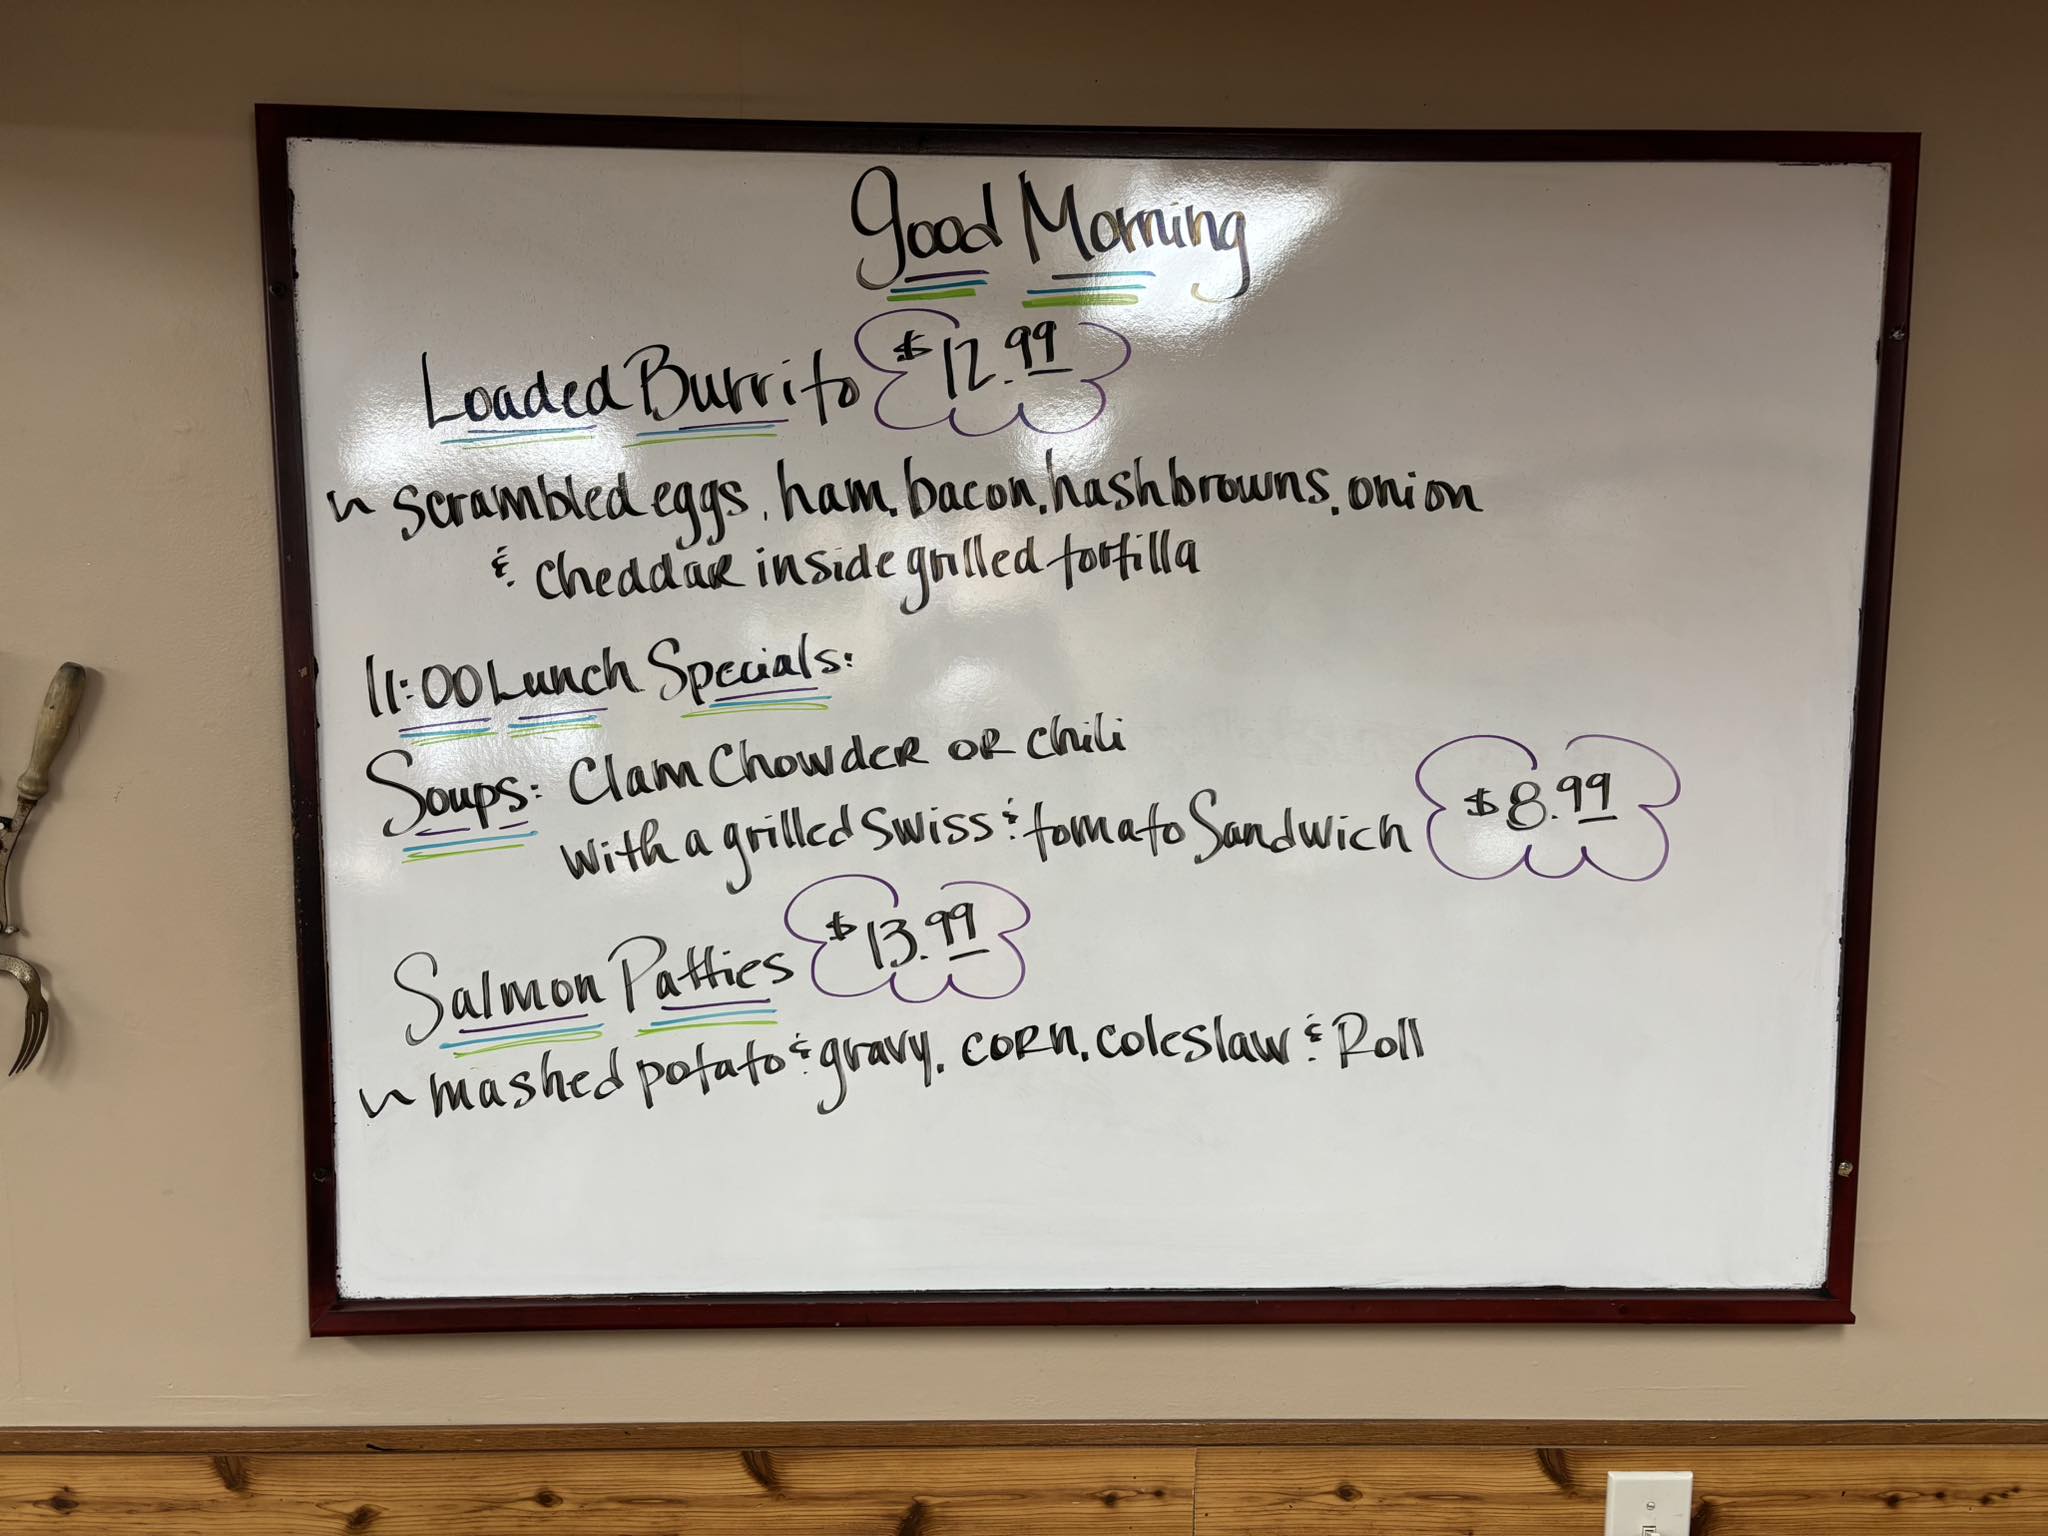 Good Morning
Loaded Burrito $12.99
~ scrambled eggs, ham, bacon, hashbrowns, onion
& cheddar inside grilled tortilla
11:00 Lunch Specials:
Soups: Clam Chowder or chili
with a grilled swiss & tomato Sandwich $8.99
Salmon Patties $13.99
~ mashed potato & gravy, corn, coleslaw & Roll